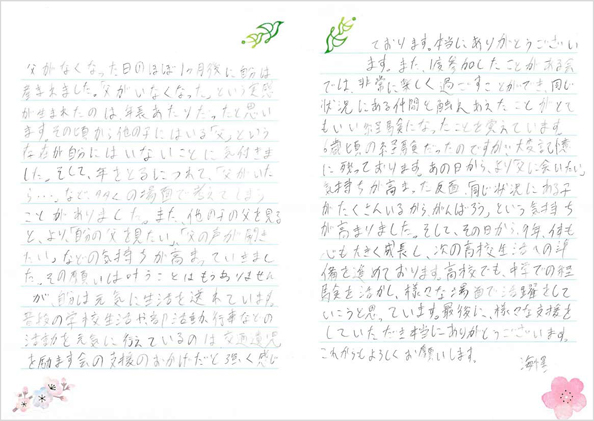 父がなくなった日のほぼ1ヶ月後に自分は
産まれました。父がいなくなった」という実感
が生まれたのは年長あたりだったと思い
ます。その頃から他の子にはいる「父」という
存在が自分にはいないことに気付きま
した。そして、年をとるにつれて、「父がいた
ら…。」など、多くの場面で考えてしまう
ことがありました。また、他の子の父を見る
と、より、「自分の父を見たい」「父の声が聞き
たい」などの気持ちが高まっていきまし
た。その願いは叶うことはもうありません
が、自分は元気に生活を送れています。
普段の学校生活や部活動、行事などの
活動を元気に行えているのは交通遺児
を励ます会の支援のおかげだと強く感じ
ております。本当にありがとうござい
ます。また、1度参加したことがある会
では、非常に楽しく過ごすことができ、同じ
状況にある仲間と触れあえたことがとて
もいい経験になったことを覚えています。
6歳頃の経験だったのですが、大変記憶
に残っております。あの日から、より「父に会いたい」
気持ちが高まった反面、「同じ状況にある子
がたくさんいるから、がんばろう」という気持ち
が高まりました。そして、その日から9年、体も
心も大きく成長し、次の高校生活への準
備を進めております。高校でも、中学での経
験を活かし、様々な場面で活躍をして
いこうと思っています。最後に、様々な支援を
していただき本当にありがとうございます。
これからもよろしくお願いします。